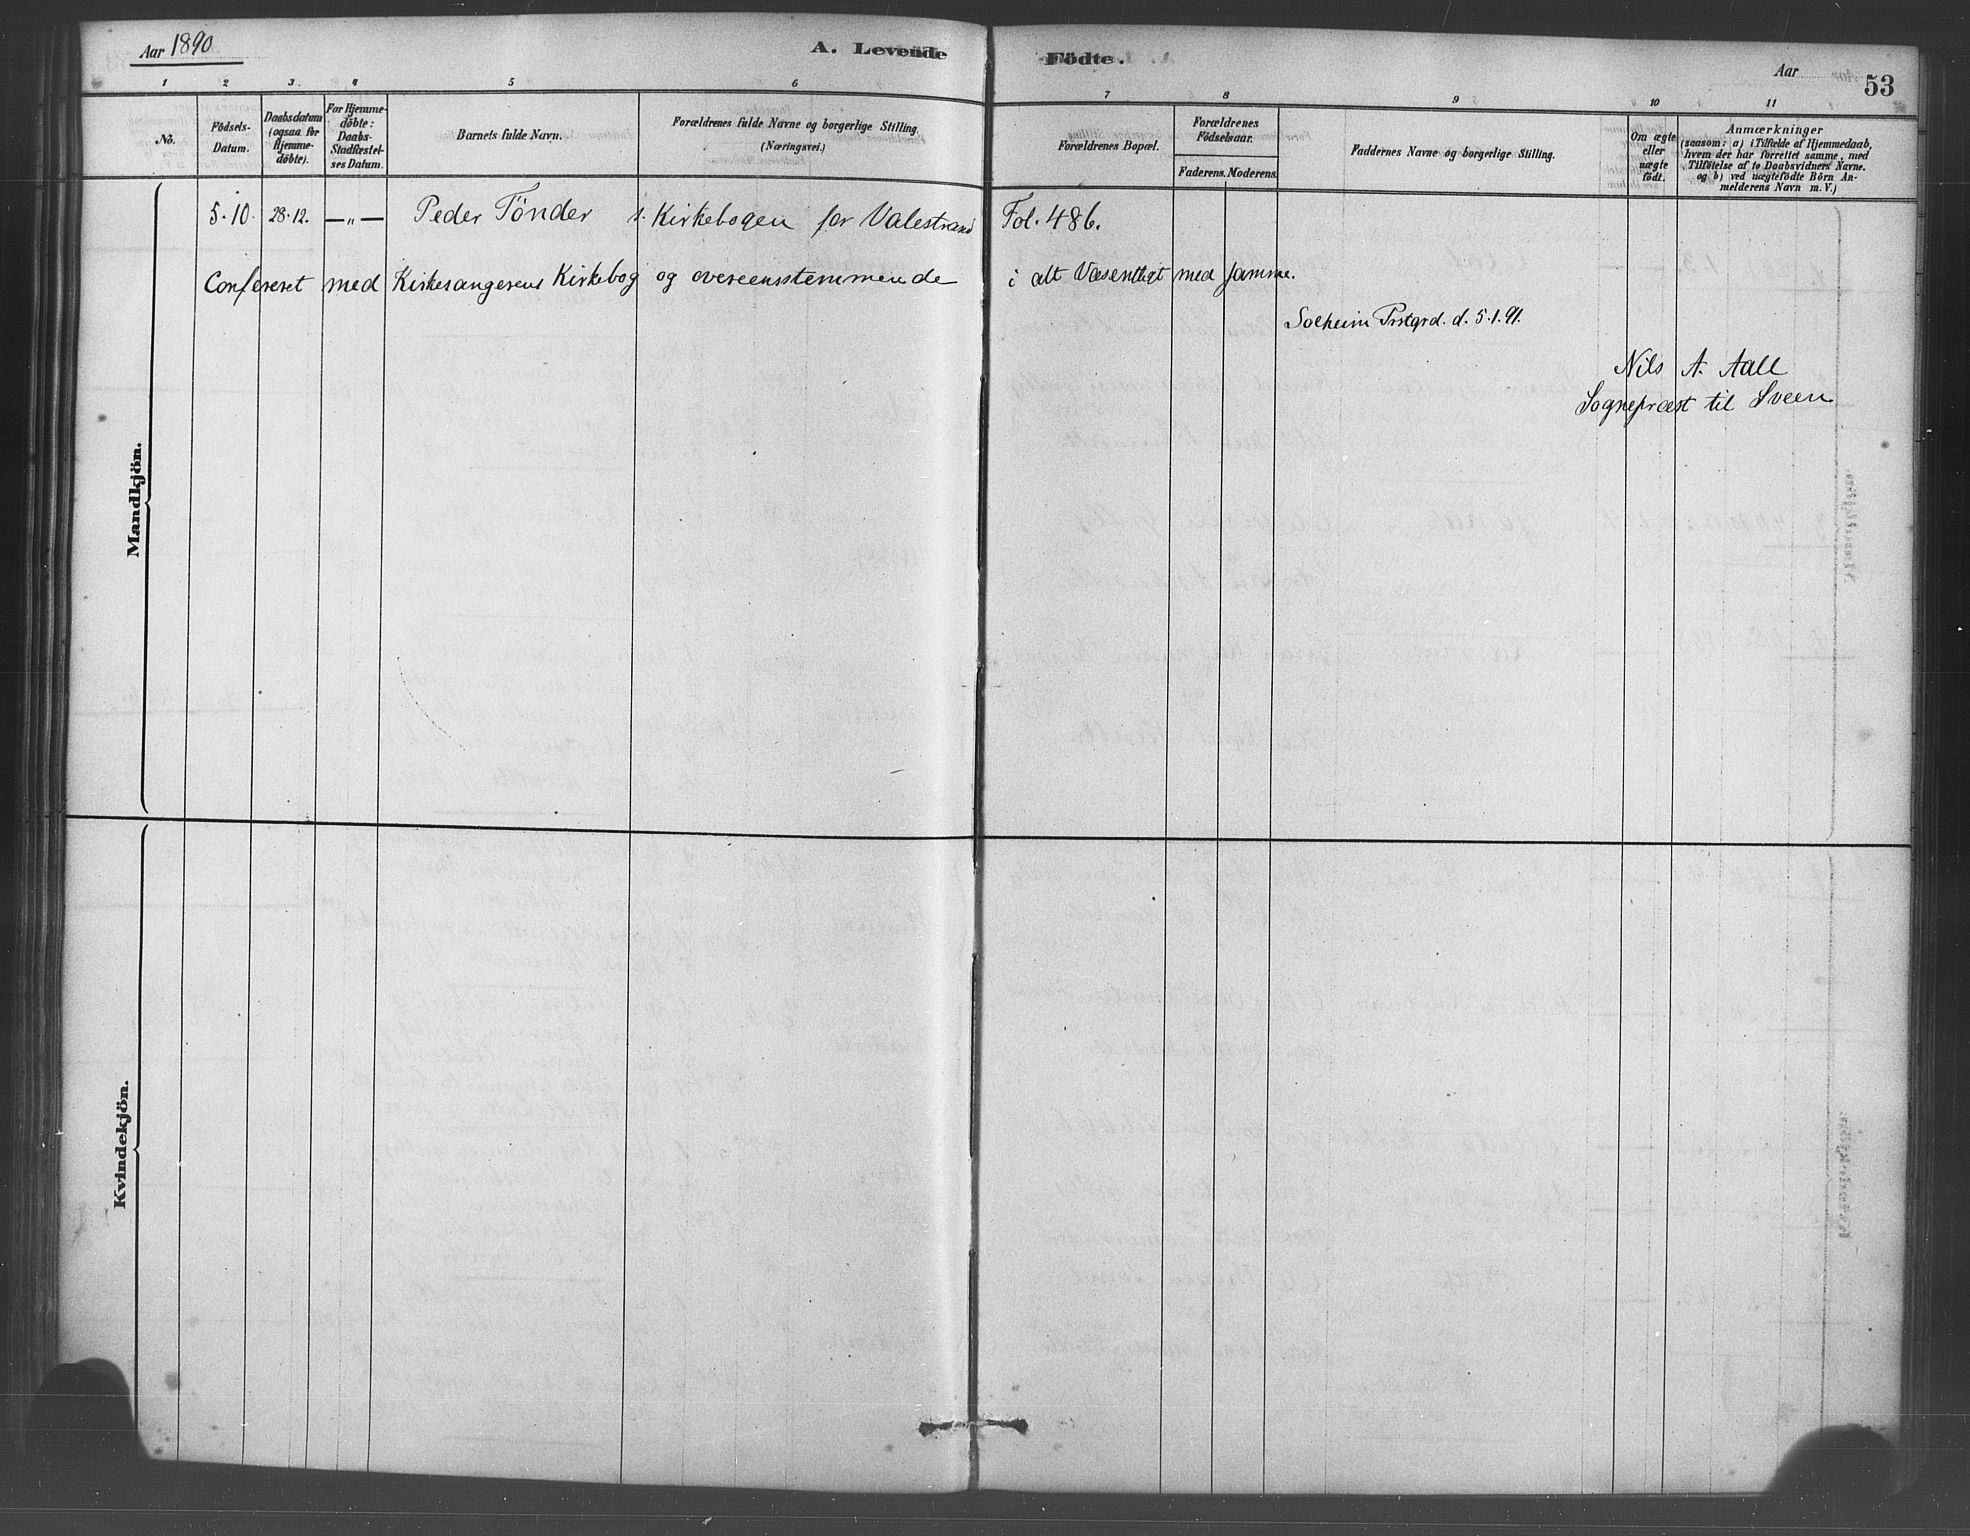 Aar 1890
A. Levende Födte.
Aar
53
1 2 3. 4 5 6 7 8 9 10 11
No.
Födsels-
Datum.
Daabsdatum
(ogsaa for
Hjemme-
döbte).
For Hjemme-
döbte:
Daabs-
Stadfæstel-
ses Datum.
Barnets fulde Navn.
Forældrenes fulde Navne og borgerlige Stilling.
(Næringsvei.)
Forældrenes Bopæl.
Forældrenes
Födselsaar.
Faderens. Moderens.
Faddernes Navne og borgerlige Stilling.
Om ægte
eller
uægte
födt.
Anmærkninger
(saasom: a) i Tilfælde af Hjemmedaab,
hvem der har forrettet samme, med
Tilföielse af to Daabsvidners Navne.
og b) ved uægtefödte Börn An-
melderens Navn m. V.)
5.10. 28.12. —„— Peder Tönder s. Kirkebogen for Valestrand Fol. 486.
Confereret med Kirkesangerens Kirkebog og overeensstemmende i alt Væsentligt med samme.
Solheim Prstgrd. d. 5.1.91.
Nils A. Aall
Sognepræst til Sveen
Mandkjön.
Kvindekjön.